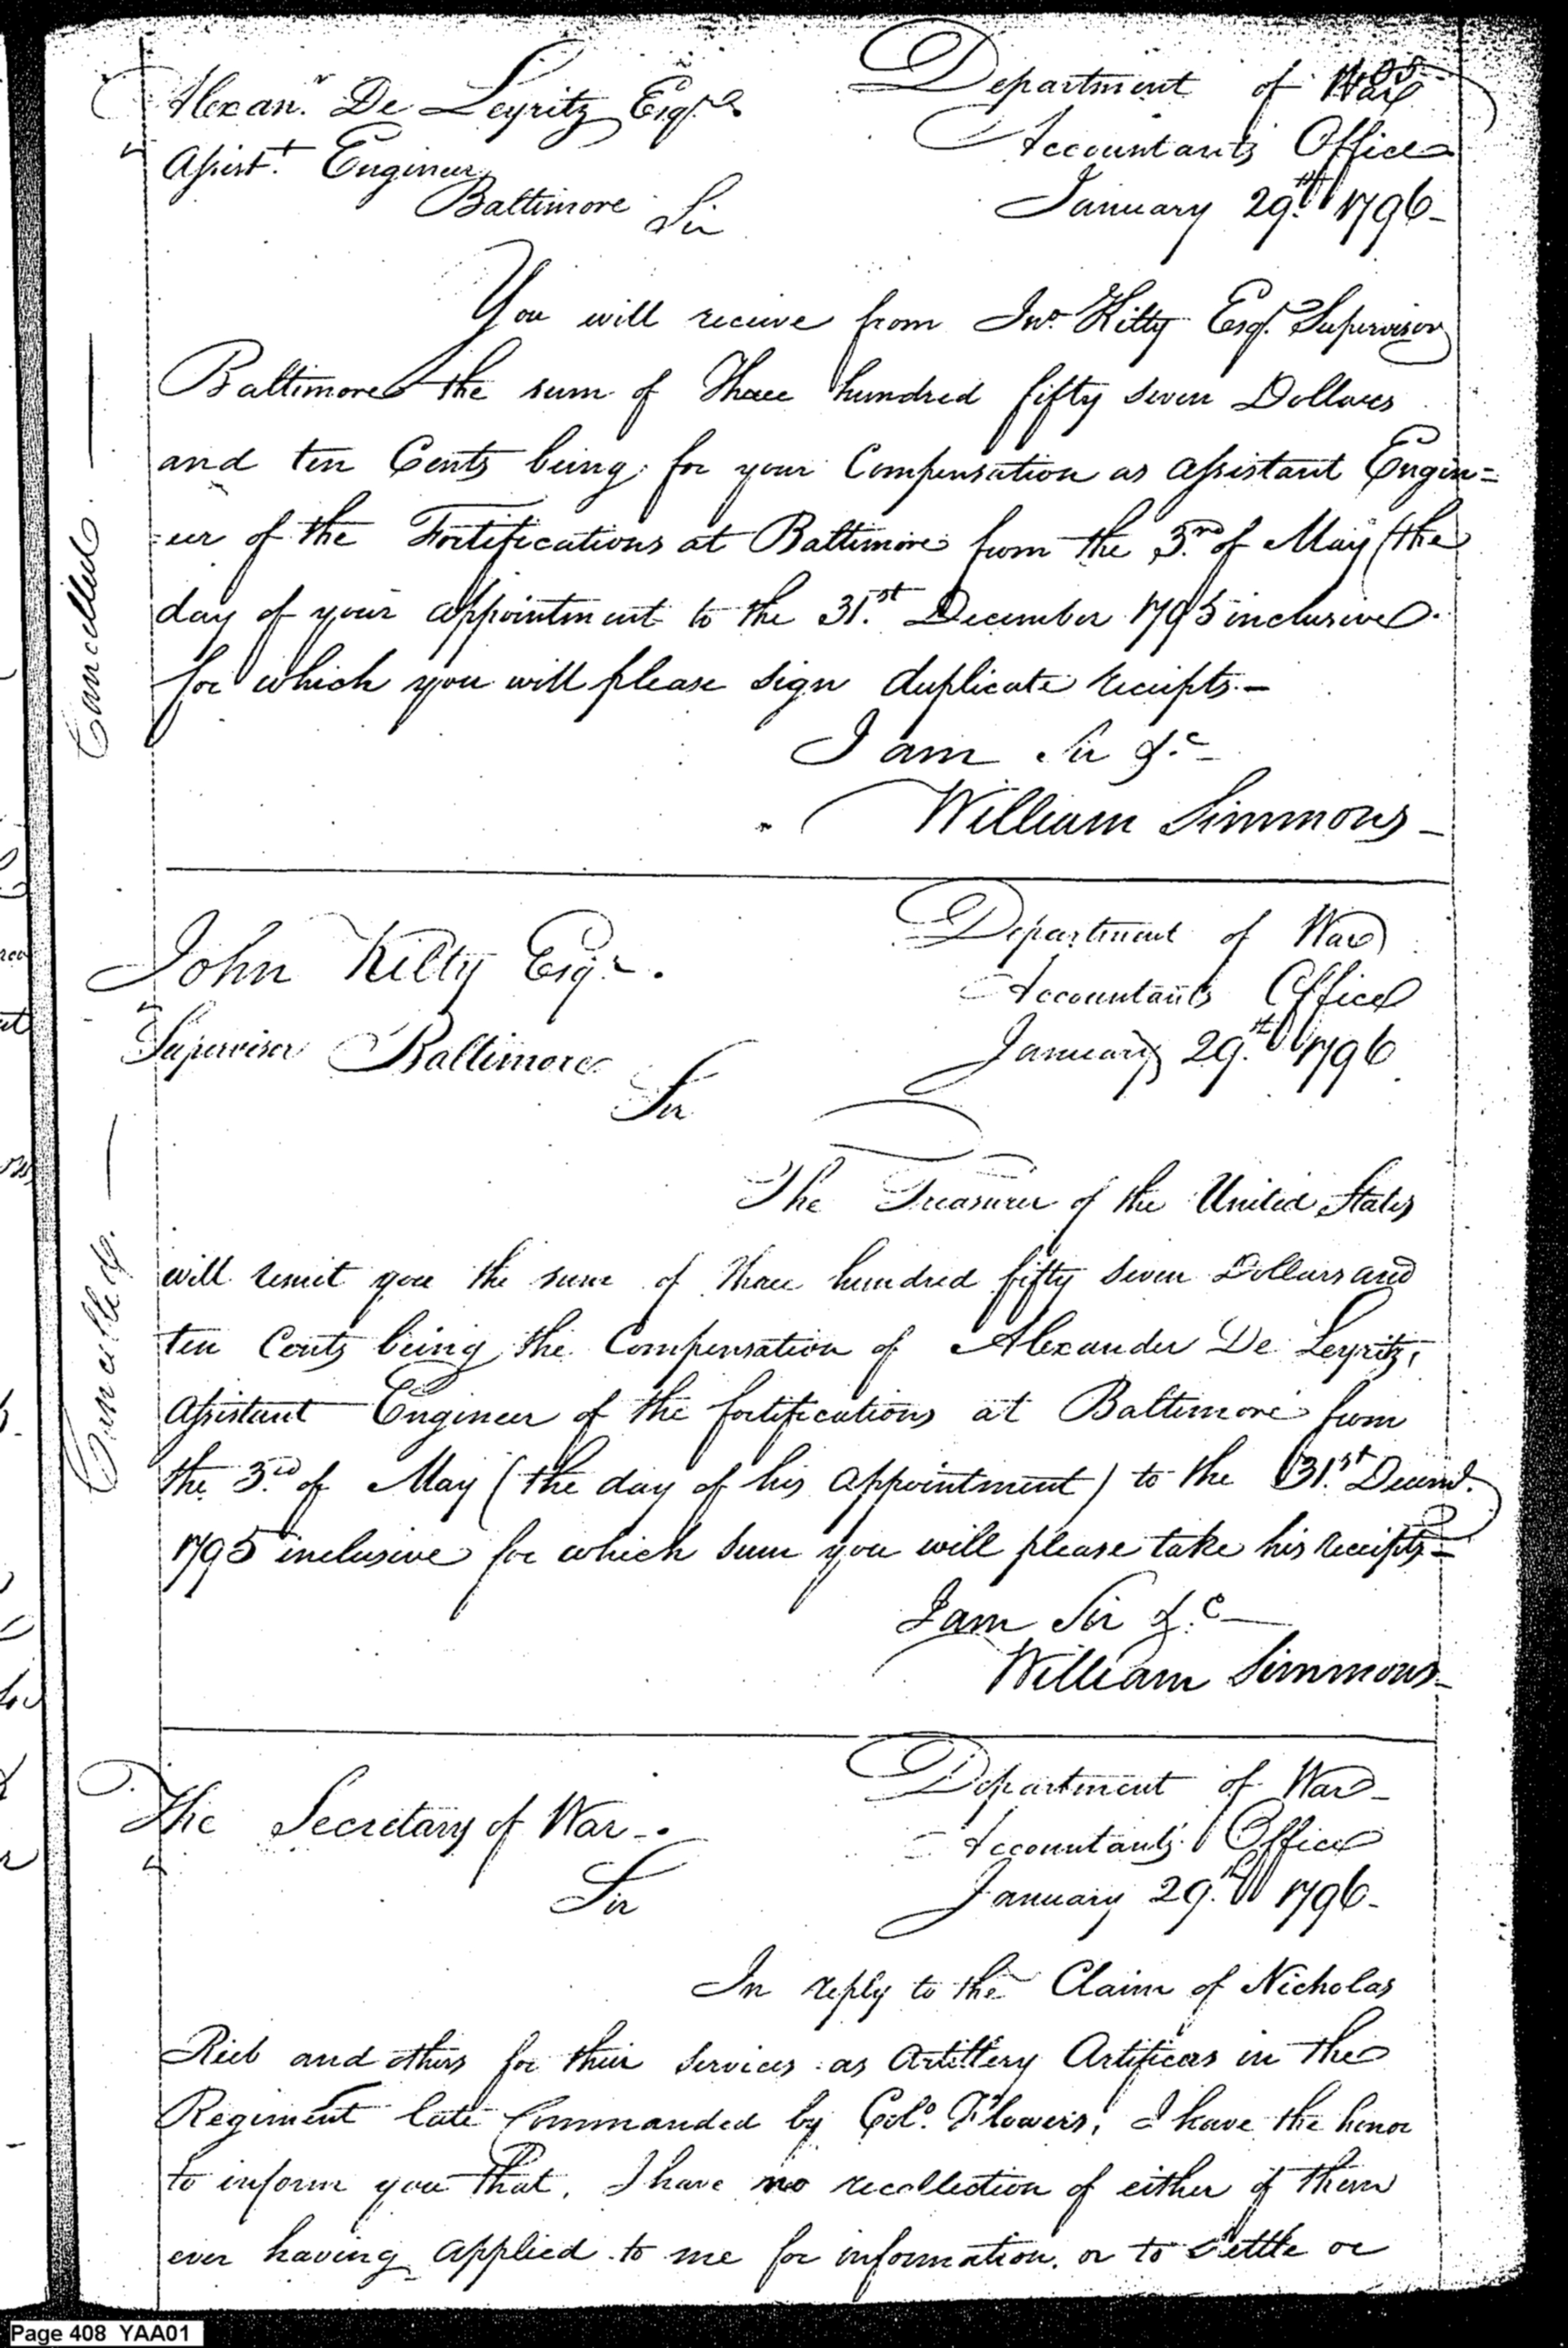 Alexanr. De Leyritz Esqre
Department of War
Assistt. Engineer
Accountants Office
Baltimore
January 29th. 1796-
Sir
You will receive from Jno. Kilty Esqr. Supervisor
Baltimore the sum of Three hundred fifty seven Dollars
and ten Cents being for your Compensation as Assistant Engin=
=eer of the Fortifications at Baltimore from the 3rd. of May (the
day of your appointment to the 31.st December 1795 inclusive.
for which you will please sign duplicate receipts.-
I am Sir &c-
William Simmons-
Cancelled.
John Kilty Esqr.
Department of War
Accountants Office
Supervisor Baltimore
January 29.th 1796
Sir
The Treasurer of the United States
will remit you the sum of three hundred fifty seven Dollars and
ten Cents being the Compensation of Alexander De Leyritz,
Assistant Engineer of the fortifications at Baltimore from
the 3.rd of May (the day of his appointment) to the 31.st Decemr.
1795 inclusive for which sum you will please take his receipts-
I am Sir &.c
William Simmons-
Cancelled.
The Secretary of War-.
Department of War-
Accountants Office
January 29.th 1796-
Sir
In reply to the Claim of Nicholas
Rieb and others for their services as Artillery Artificers in the
Regiment late Commanded by Colo. Flowers, I have the honor
to inform you that, I have no recollection of either of them
ever having applied to me for information, or to settle or
Page 408 YAA01